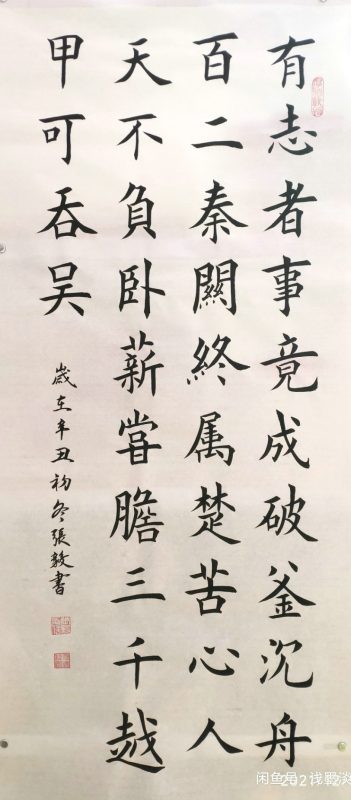 有志者事竟成破釜沉舟
百二秦關終属楚苦心人
天不負卧薪嘗膽三千越
甲可吞吴
歲在辛丑初冬張毅書
闲鱼号
2021